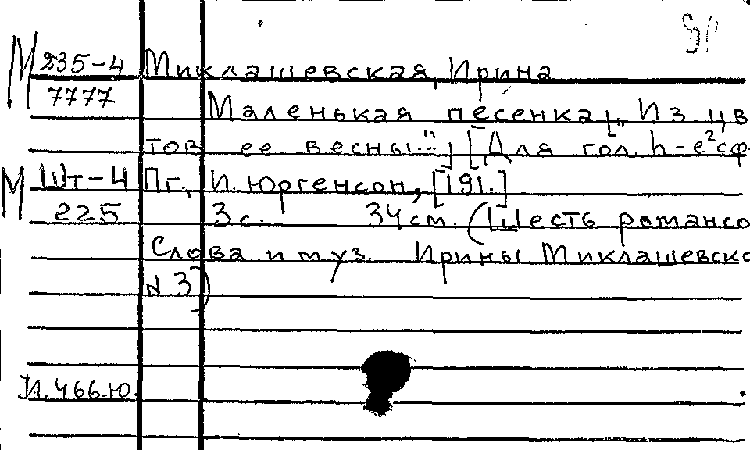 М 235-4 Миклашевская, Ирина
7777 Маленькая песенка [„Из цв
тов ее весны..."] [Для гол. h-e²сф
М Шт-4 Пг., И. Юргенсон, [191.]
225 3 с. 34 см. (Шесть романсо
Слова и муз. Ирины Миклашевско
№ 3)
И. 466.Ю.